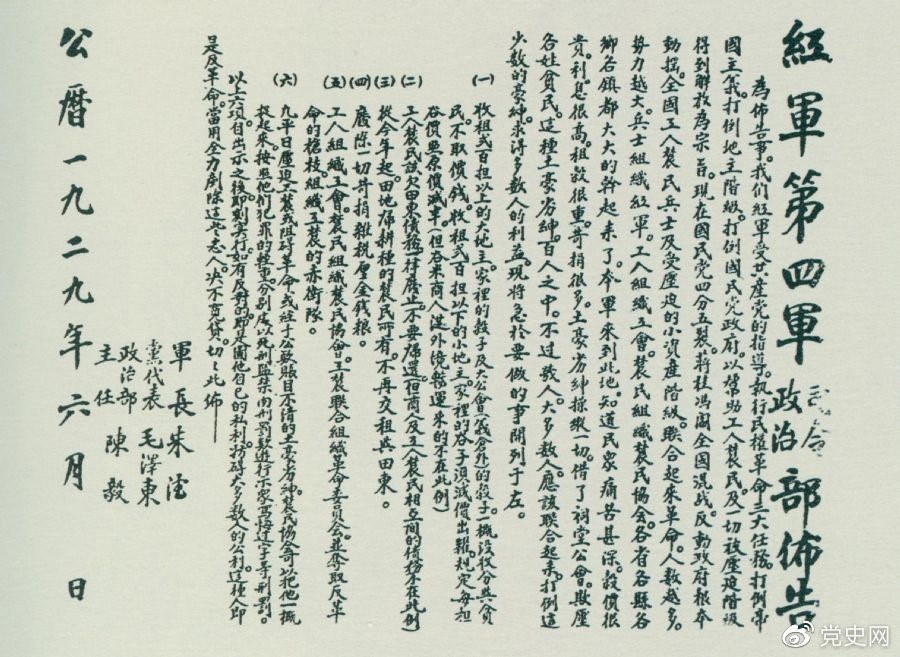 紅軍第四軍司令政治部佈告
為佈告事。我們紅軍受共產黨的指導。執行民權革命三大任務。打倒帝
國主義。打倒地主階級。打倒國民黨政府。以幫助工人農民。及一切被壓迫階級
得到解放為宗旨。現在國民黨四分五裂。蔣桂馮閻全國混戰。反動政府根本
動搖。全國工人農民兵士及受壓迫的小資產階級。聯合起來革命。人數越多。
勢力越大。兵士組織紅軍。工人組織工會。農民組織農民協會。各省各縣各
鄉各鎮都大大的幹起來了。本軍來到此地。知道民衆痛苦甚深。穀價很
貴。利息很高。租穀很重。苛捐很多。土豪劣紳操縱一切。借了祠堂公會。欺壓
各姓貧民。這種土豪劣紳。百人之中。不過數人。大多數人。應該聯合起來。打倒這
少數的豪紳。求得多數人的利益。現將急於要做的事開列于左。
(一) 收租弍百担以上的大地主。家裡的穀子及大公會(義倉外)的穀子。一概沒收分與貧
民。不取價錢。收租弍百担以下的小地主。家裡的谷子。須減價出糶。規定每担
谷價照原價減半。(但谷米商人從外境販運來的不在此例)
(二) 工人農民該欠田東債務。一律廢止。不要歸還。(但商人及工人農民相互間的債務不在此例)
(三) 從今年起。田地歸耕種的農民所有。不再交租與田東。
(四) 廢除一切苛捐雜稅厘金錢粮。
(五) 工人組織工會。農民組織農民協會。工農聯合組織革命委員會。並奪取反革
命的槍枝組織工農的赤衛隊。
(六) 凡平日壓迫工農或阻碍革命或經手公款賬目不清的土豪劣紳。農民協會可以把他一概
捉起來。按照他們犯罪的輕重。分別處以死刑監禁肉刑罰款遊行示家寫悔過字等刑罰。
以上六項自出示之後即刻實行。如有反對的。即是圖他自己的私利。妨碍大多數人的公利。這種人即
是反革命。當用全力剷除這些忘人。決不寬貸。切切此佈
軍長朱德
黨代表毛澤東
政治部主任陳毅
公曆一九二九年六月 日
党史网